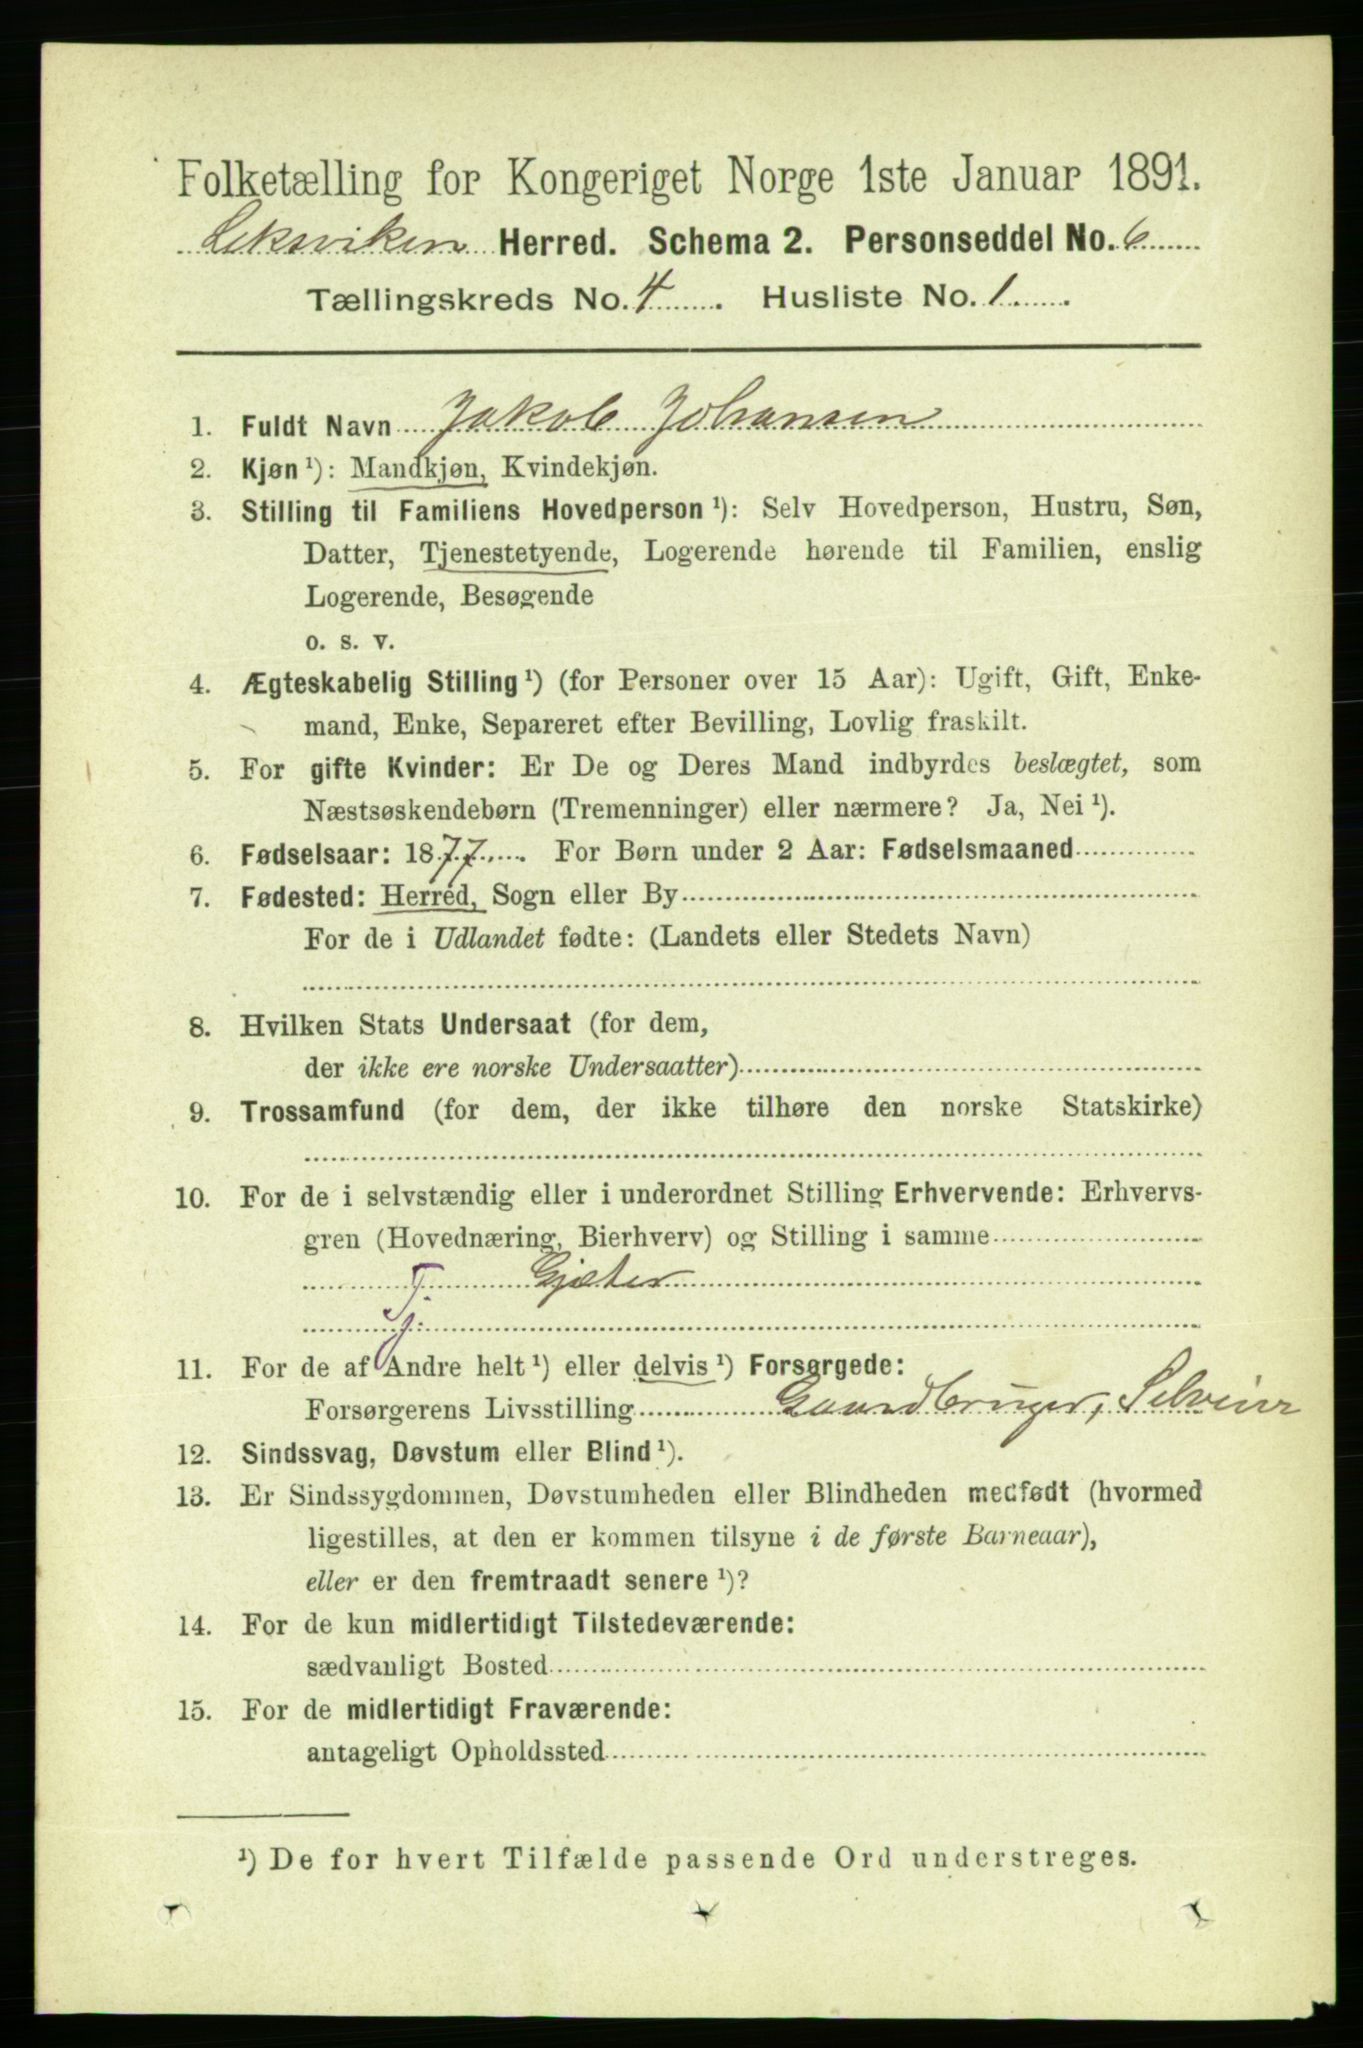 Folketælling for Kongeriget Norge 1ste Januar 1891.
Leksviken Herred. Schema 2. Personseddel No. 6
Tællingskreds No. 4. Husliste No. 1.
1. Fuldt Navn Jakob Johansen
2. Kjøn ¹): Mandkjøn, Kvindekjøn.
3. Stilling til Familiens Hovedperson ¹): Selv Hovedperson, Hustru, Søn,
Datter, Tjenestetyende, Logerende hørende til Familien, enslig
Logerende, Besøgende
o. s. v.
4. Ægteskabelig Stilling ¹) (for Personer over 15 Aar): Ugift, Gift, Enke-
mand, Enke, Separeret efter Bevilling, Lovlig fraskilt.
5. For gifte Kvinder: Er De og Deres Mand indbyrdes beslægtet, som
Næstsøskendebørn (Tremenninger) eller nærmere? Ja, Nei ¹).
6. Fødselsaar: 1877. For Børn under 2 Aar: Fødselsmaaned
7. Fødested: Herred, Sogn eller By
For de i Udlandet fødte: (Landets eller Stedets Navn)
8. Hvilken Stats Undersaat (for dem,
der ikke ere norske Undersaatter)
9. Trossamfund (for dem, der ikke tilhøre den norske Statskirke)
10. For de i selvstændig eller i underordnet Stilling Erhvervende: Erhvervs-
gren (Hovednæring, Bierhverv) og Stilling i samme
T. Gjæter
j.
11. For de af Andre helt ¹) eller delvis ¹) Forsørgede:
Forsørgerens Livsstilling Gaardbruger, Selveier
12. Sindssvag, Døvstum eller Blind ¹).
13. Er Sindssygdommen, Døvstumheden eller Blindheden medfødt (hvormed
ligestilles, at den er kommen tilsyne i de første Barneaar),
eller er den fremtraadt senere ¹)?
14. For de kun midlertidigt Tilstedeværende:
sædvanligt Bosted
15. For de midlertidigt Fraværende:
antageligt Opholdssted
¹) De for hvert Tilfælde passende Ord understreges.